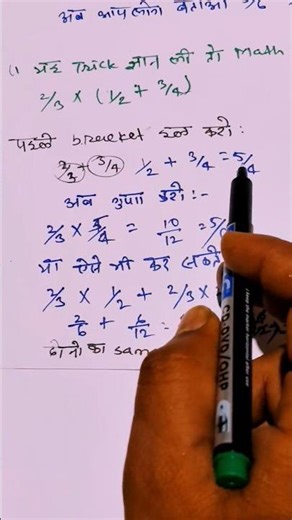 अब आप लोग बताओ 5/6
यह Trick जान लो तो Math
2/3 × (1/2 + 3/4)
पहले bracket हल करो:
2/3 + 3/4 1/2 + 3/4 = 5/4
अब गुणा करो:-
2/3 × 5/4 = 10/12 = 5/6
या ऐसे भी कर सकते
2/3 × 1/2 + 2/3 ×
2/6 + 6/12 =
दोनो का sam
CD/DVD/OHP